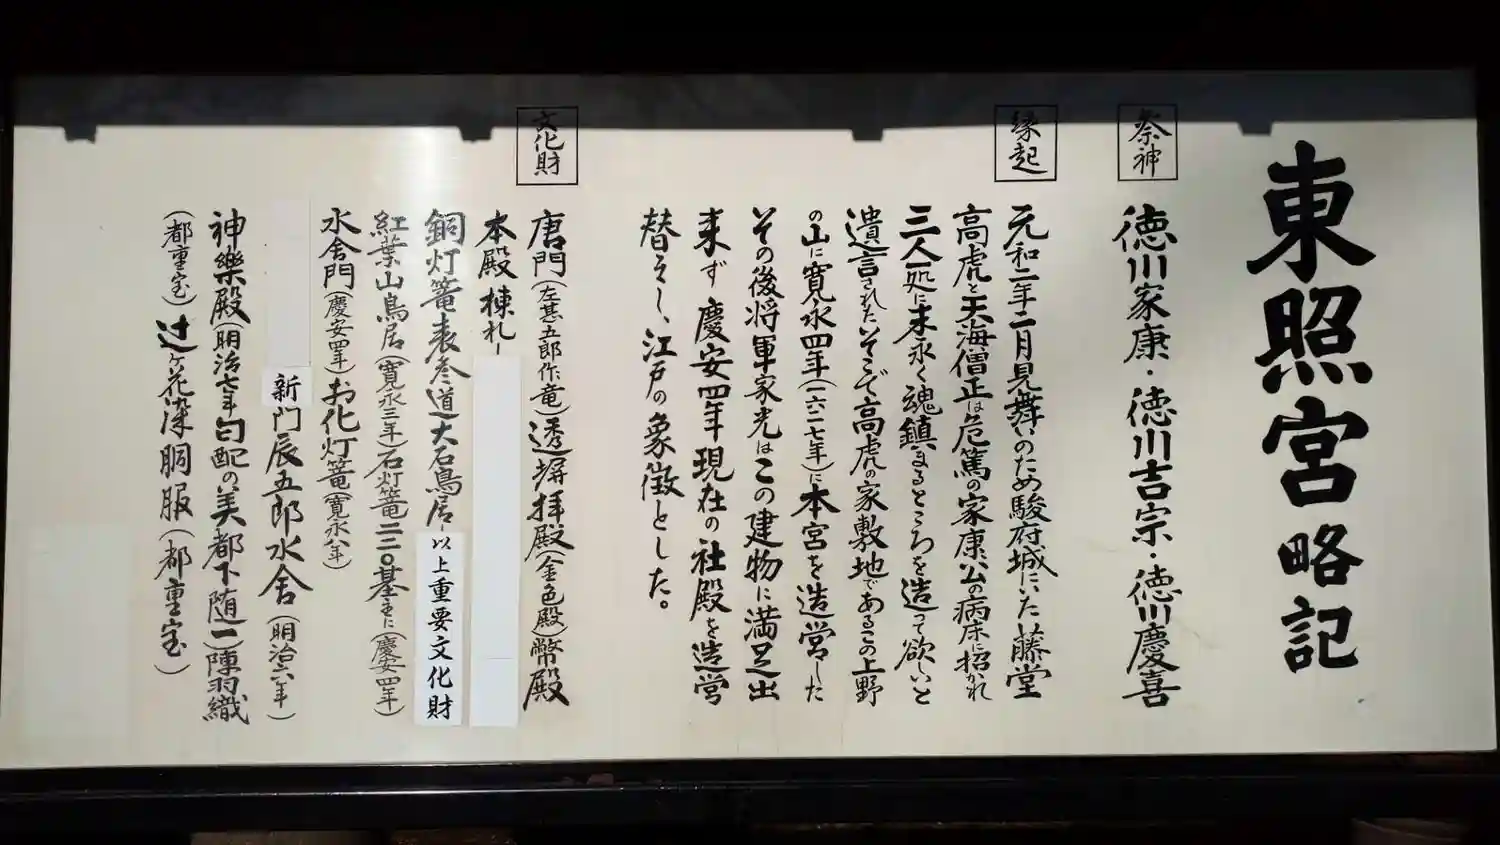 東照宮略記
祭神
徳川家康・徳川吉宗・徳川慶喜
縁起
元和二年二月見舞いのため駿府城にいた藤堂
高虎と天海僧正は危篤の家康公の病床に招かれ
三人一処に末永く魂鎮まるところを造って欲しいと
遺言されたそこで高虎の家敷地であるこの上野
の山に寛永四年(一六二七年)に本宮を造営した
その後将軍家光はこの建物に満足出
来ず慶安四年現在の社殿を造営
替えし、江戸の象徴とした。
文化財
唐門(左甚五郎作竜)透塀拝殿(金色殿)幣殿
本殿棟札―
銅灯篭表参道大石鳥居―以上重要文化財
紅葉山鳥居(寛永三年)石灯篭二二〇基主に(慶安四年)
水舎門(慶安四年)お化灯篭(寛永八年)
新門辰五郎水舎(明治六年)
神樂殿(明治七年匂配の美都下随一)陣羽織
(都重宝)辻ヶ花染胴服(都重宝)